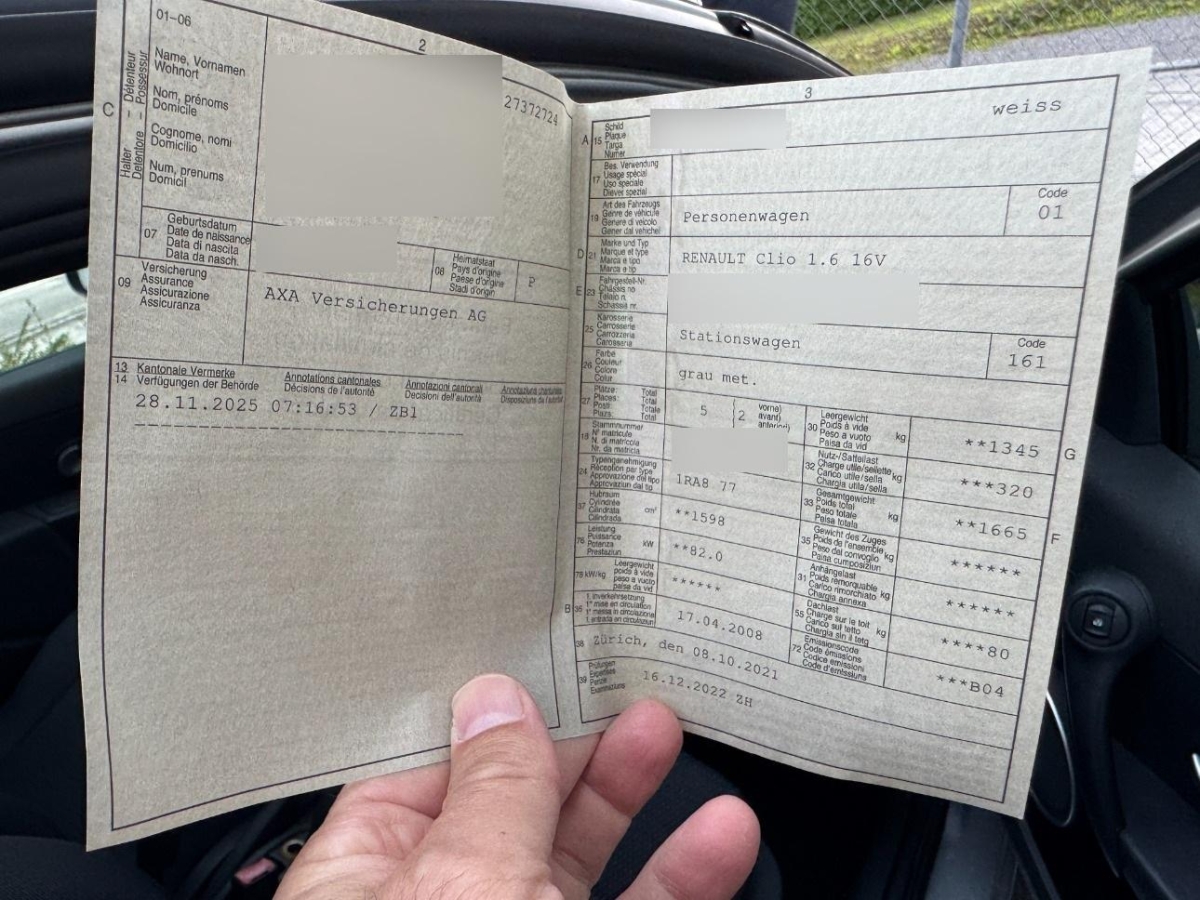 2
01-06
C
Halter - Détenteur
Detentore - Possessur
Name, Vornamen
Wohnort
Nom, prénoms
Domicile
Cognome, nomi
Domicilio
Num, prenums
Domicil
27372724
07
Geburtsdatum
Date de naissance
Data di nascita
Data da nasch.
08
Heimatstaat
Pays d'origine
Paese d'origine
Stadi d'origin
P
09
Versicherung
Assurance
Assicurazione
Assicuranza
AXA Versicherungen AG
13 Kantonale Vermerke Annotations cantonales Annotazioni cantonali Annotaziuns chantunalas
14 Verfügungen der Behörde Décisions de l'autorité Decisioni dell'autorità Disposiziuns da l'autoritad
28.11.2025 07:16:53 / ZB1
3
A 15
Schild
Plaque
Targa
Numer
weiss
17
Bes. Verwendung
Usage spécial
Uso speciale
Diever spezial
19
Art des Fahrzeugs
Genre de véhicule
Genere di veicolo
Gener dal vehichel
Personenwagen
Code
01
D 21
Marke und Typ
Marque et type
Marca e tipo
Marca e tip
RENAULT Clio 1.6 16V
E 23
Fahrgestell-Nr.
Châssis no
Telaio n.
Schassis nr.
25
Karosserie
Carrosserie
Carrozzeria
Carossaria
Stationswagen
Code
161
26
Farbe
Couleur
Colore
Colur
grau met.
27
Plätze: Total
Places: Total
Posti: Totale
Plazs: Total
5
2
vorne)
avant)
anteriori)
18
Stammnummer
N° matricule
N. di matricola
Nr. da matricla
24
Typengenehmigung
Réception par type
Approvazione del tipo
Approvaziun dal tip
1RA8 77
37
Hubraum
Cylindrée
Cilindrata
Cilindrada
cm³
**1598
76
Leistung
Puissance
Potenza
Prestaziun
kW
**82.0
78 kW/kg
Leergewicht
poids à vide
peso a vuoto
paisa da vid
******
B 36
1. Inverkehrsetzung
1re mise en circulation
1a messa in circolazione
1. entrada en circulaziun
17.04.2008
30
Leergewicht
Poids à vide
Peso a vuoto
Paisa da vid
kg
**1345
G
32
Nutz-/Sattellast
Charge utile/sellette
Carico utile/sella
Chargia utila/sella
kg
***320
33
Gesamtgewicht
Poids total
Peso totale
Paisa totala
kg
**1665
F
35
Gewicht des Zuges
Poids de l'ensemble
Peso del convoglio
Paisa cumposiziun
kg
******
31
Anhängelast
Poids remorquable
Carico rimorchiato
Chargia annexa
kg
******
55
Dachlast
Charge sur le toit
Carico sul tetto
Chargia sin il tetg
kg
****80
72
Emissionscode
Code émissions
Codice emissioni
Code d'emissiuns
***B04
38
Zürich, den 08.10.2021
39
Prüfungen
Expertises
Perizie
Examinaziuns
16.12.2022 ZH